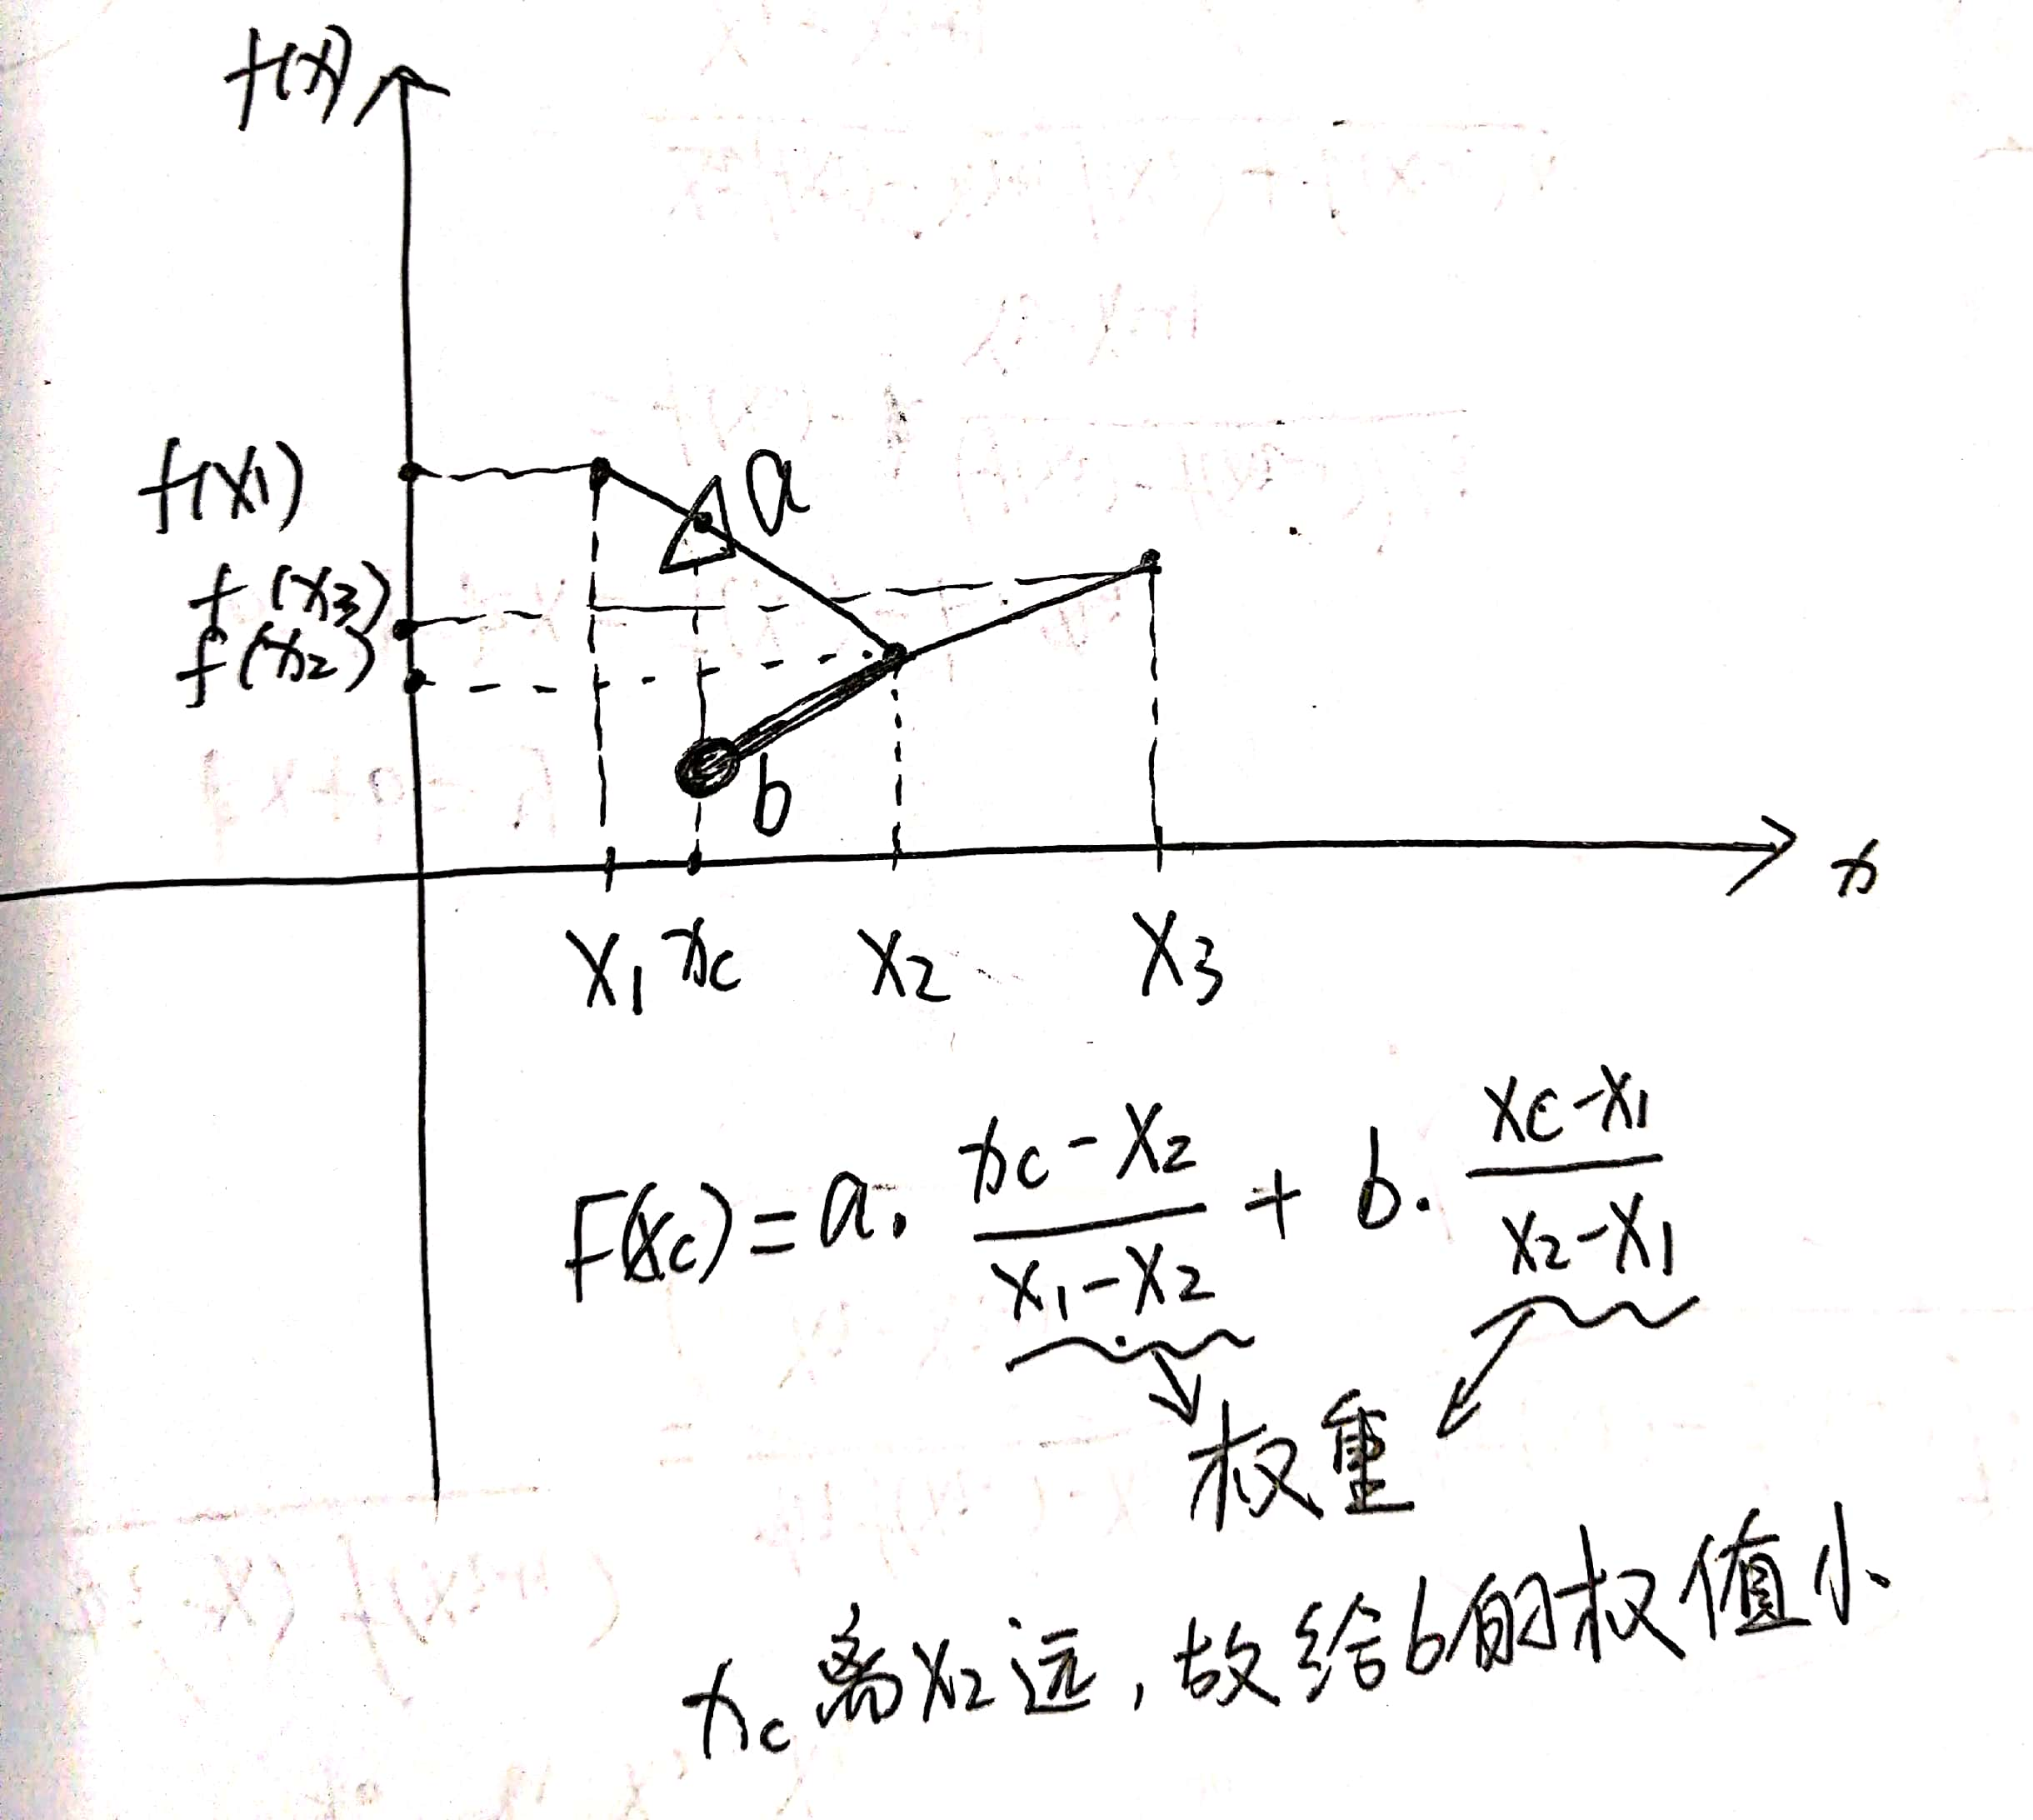 f(x)
f(x1)
a
f(x3)
f(x2)
b
x
x1 xc x2 x3
F(xc) = a· (xc-x2)/(x1-x2) + b· (xc-x1)/(x2-x1)
权重
xc离x2远,故给b的权值小